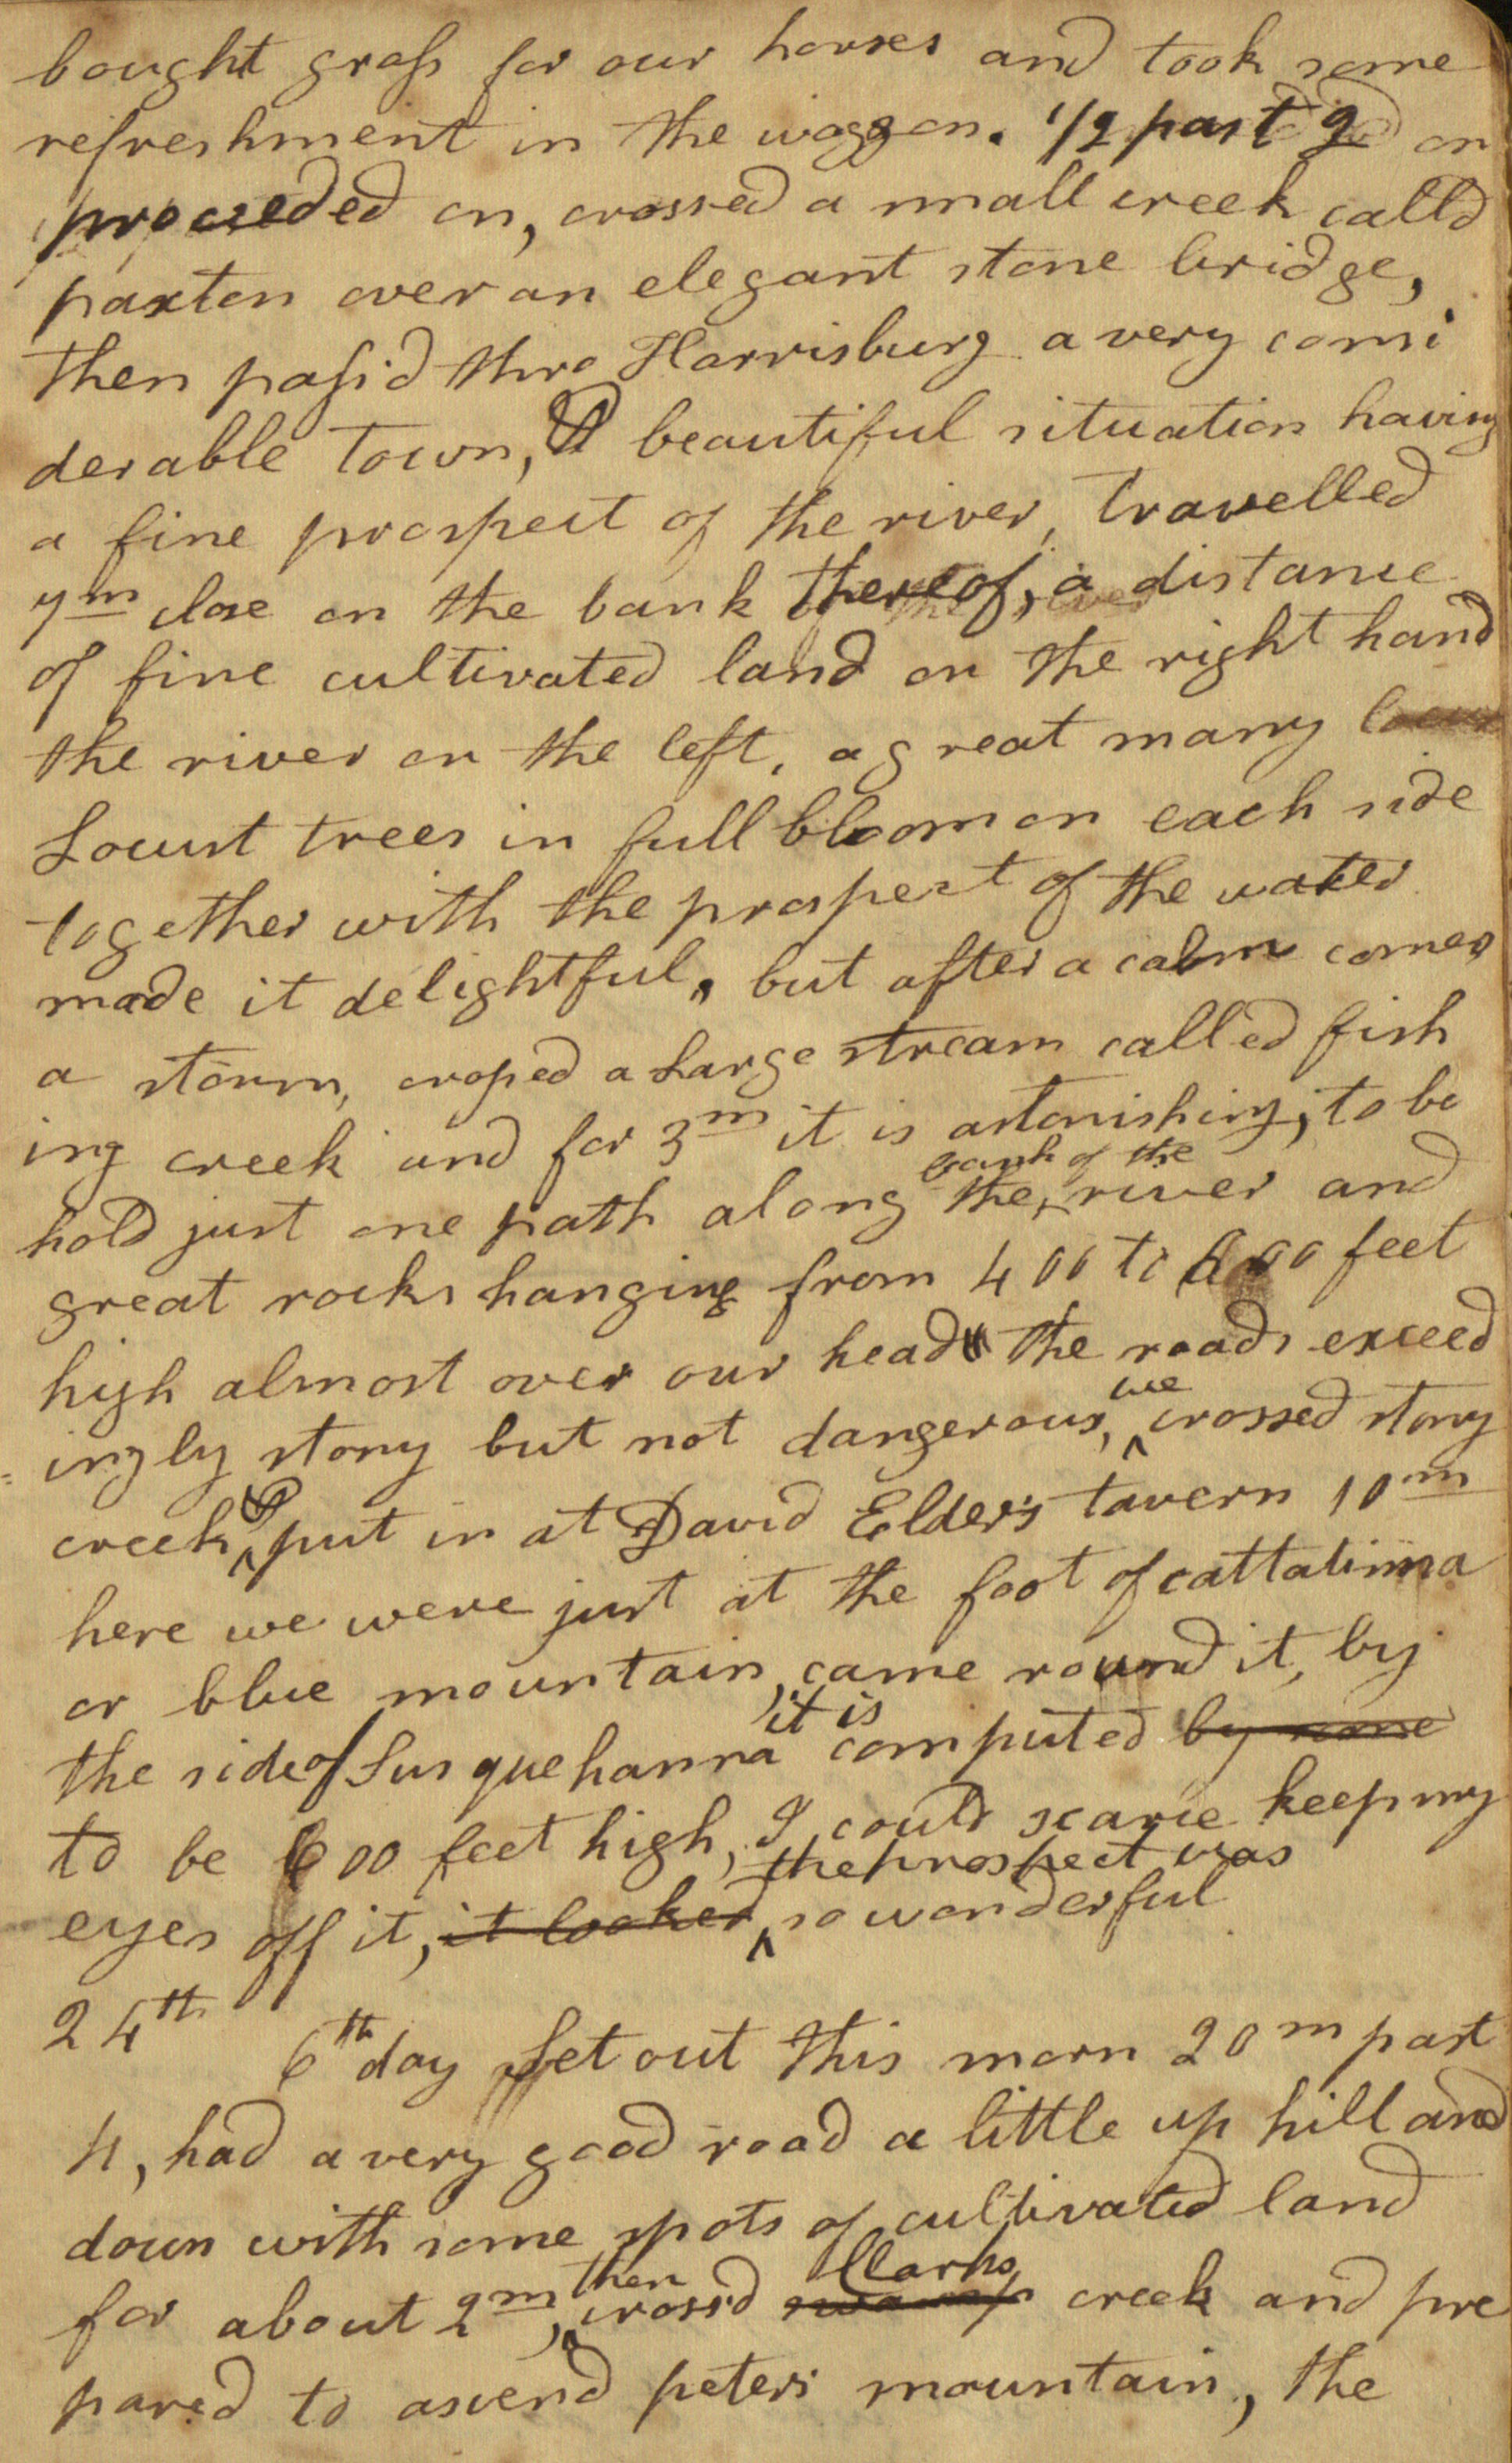 bought grass for our horses and took some
refreshment in the waggon. 1/2 past 2 on
proceeded on, crossed a small creek calld
paxton over an elegant stone bridge,
then pass'd thro Harrisburg a very consi
derable town, & beautiful situation having
a fine prospect of the river, travelled
7m close on the bank thereof, a distance
of fine cultivated land on the right hand
the river on the left, a great many locust
Locust trees in full bloom on each side
together with the prospect of the water
made it delightful, but after a calm comes
a storm, crossed a Large stream called fish
ing creek and for 3m it is astonishing, to be
bank of the
hold just one path along the river and
great rocks hanging from 400 to 600 feet
high almost over our heads the roads exceed
we
ingly stony but not dangerous, crossed stony
creek & put in at David Elder's tavern 10m
here we were just at the foot of cattatinna
or blue mountain, came round it, by
it is
the side of Susquehanna computed by some
to be 600 feet high, I could scarce keep my
the prospect was
eyes off it, it looked so wonderful
24th
6th day Set out this morn 20m past
4, had a very good road a little up hill and
down with some spots of cultivated land
then Clarks
for about 2m, cross'd swamp creek and pre
pared to ascend peters mountain, the